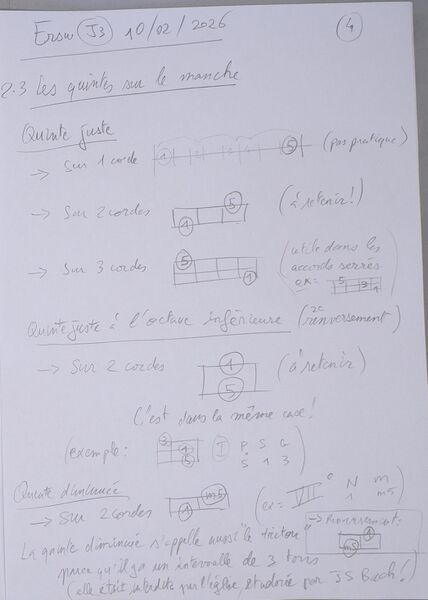 Ersw J3 10/02/2026 4
2.3 Les quintes sur le manche
Quinte juste
→ Sur 1 corde 1 5 (pas pratique)
→ Sur 2 cordes 1 5 (à retenir!)
→ Sur 3 cordes 5 1 (utile dans les
accords serrés
ex = 5 3 1
Quinte juste à l'octave inférieure (renversement)
→ Sur 2 cordes 1 5 (à retenir)
C'est dans la même case!
(exemple: 3 1 5 I P S G
5 1 3)
Quinte diminuée
→ Sur 2 cordes 1 m5 (ex = VII° N m
1 m5)
→ Renversement:
m5 1
La quinte diminuée s'appelle aussi "le triton"
parce qu'il y a un intervalle de 3 tons
(elle était interdite par l'église et adorée par JS Bach!)